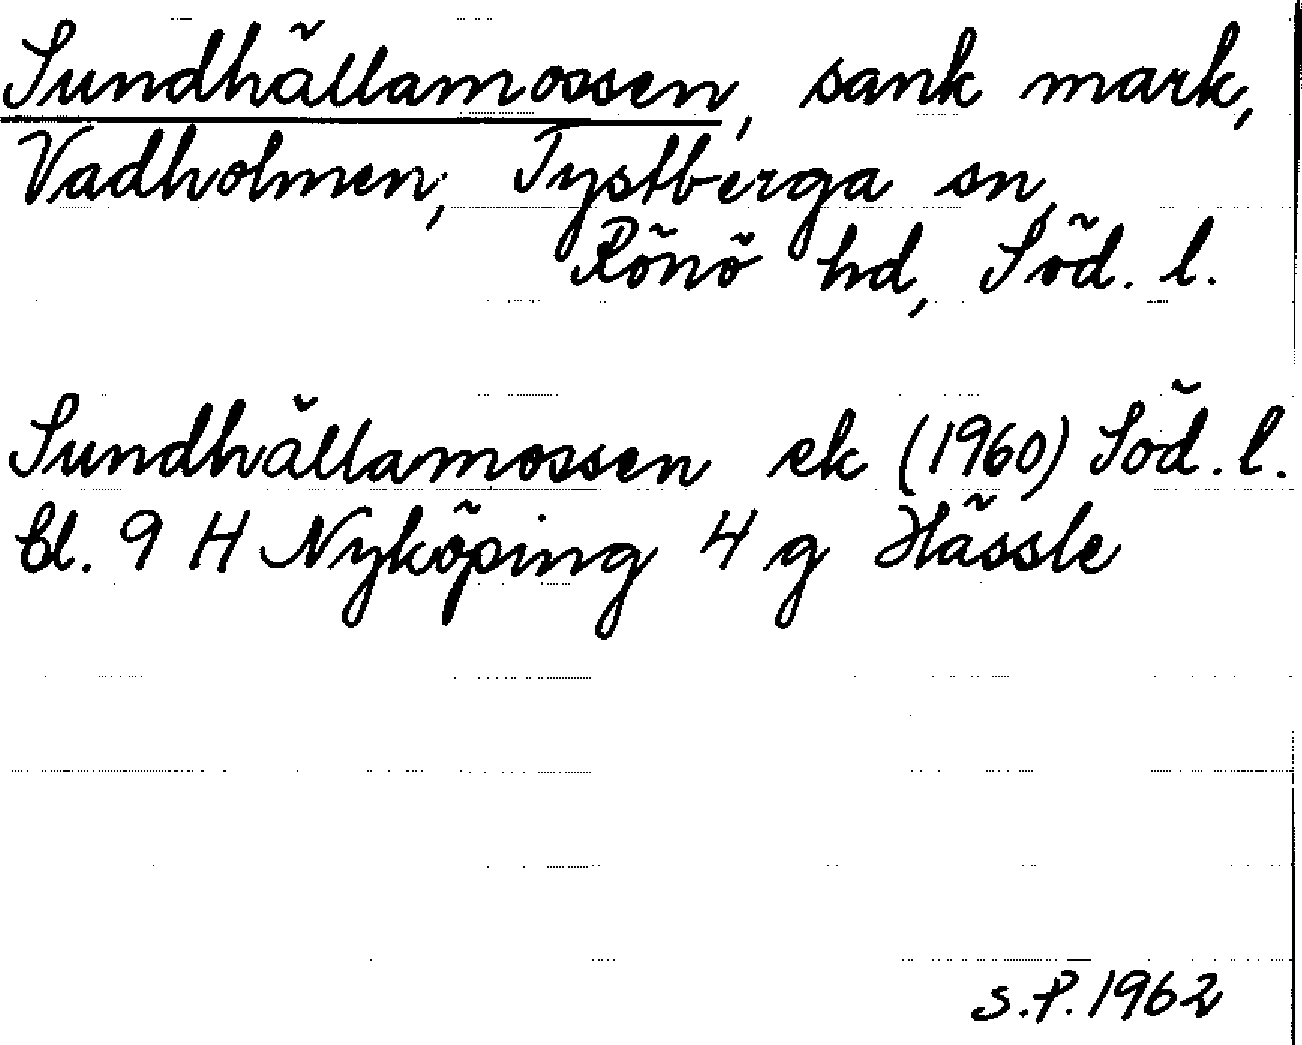 Sundhällamossen, sank mark,
Vadholmen, Tystberga sn,
Rönö hd, Söd. l.
Sundhällamossen ek (1960) Söd. l.
bl. 9 H Nyköping 4 g Hässle
S.P. 1962